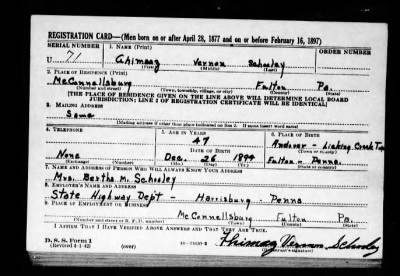 REGISTRATION CARD—(Men born on or after April 28, 1877 and on or before February 16, 1897)
SERIAL NUMBER 1. NAME (Print) ORDER NUMBER
U 71 Vernon Schooley
(First) (Middle) (Last)
2. PLACE OF RESIDENCE (Print)
McConnellsburg Fulton Pa.
(Town, township, village, or city) (County) (State)
[THE PLACE OF RESIDENCE GIVEN ON THE LINE ABOVE WILL DETERMINE LOCAL BOARD
JURISDICTION; LINE 2 OF REGISTRATION CERTIFICATE WILL BE IDENTICAL]
3. MAILING ADDRESS
Same
[Mailing address if other than place indicated on line 2. If same insert word same]
4. TELEPHONE 5. AGE IN YEARS 6. PLACE OF BIRTH
47 Andover - Licking Creek Twp
DATE OF BIRTH (Town or county)
None Dec. 26 1894 Fulton - Penna.
(Exchange) (Number) (Mo.) (Day) (Yr.) (State or country)
7. NAME AND ADDRESS OF PERSON WHO WILL ALWAYS KNOW YOUR ADDRESS
Mrs. Bertha M. Schooley
8. EMPLOYER'S NAME AND ADDRESS
State Highway Dept - Harrisburg - Penna
9. PLACE OF EMPLOYMENT OR BUSINESS
McConnellsburg Fulton Pa.
(Number and street or R. F. D. number) (Town) (County) (State)
I AFFIRM THAT I HAVE VERIFIED ABOVE ANSWERS AND THAT THEY ARE TRUE.
D. S. S. Form 1
(Revised 4-1-42) (over) Vernon Schooley
(Registrant's signature)